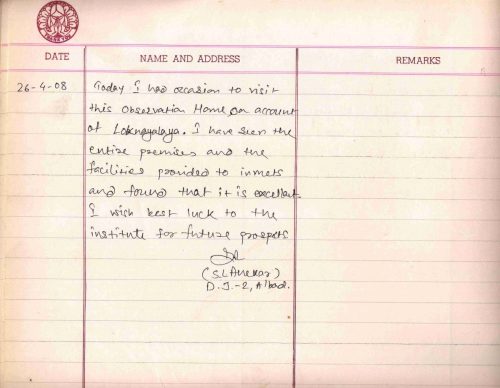 DATE
NAME AND ADDRESS
REMARKS
26-4-08
Today I had occasion to visit
this observation Home on account
of Loknyalaya. I have seen the
entire premises and the
facilities provided to inmets
and found that it is excellent.
I wish best luck to the
institute for future prospets
D.J.-2, A'bad.